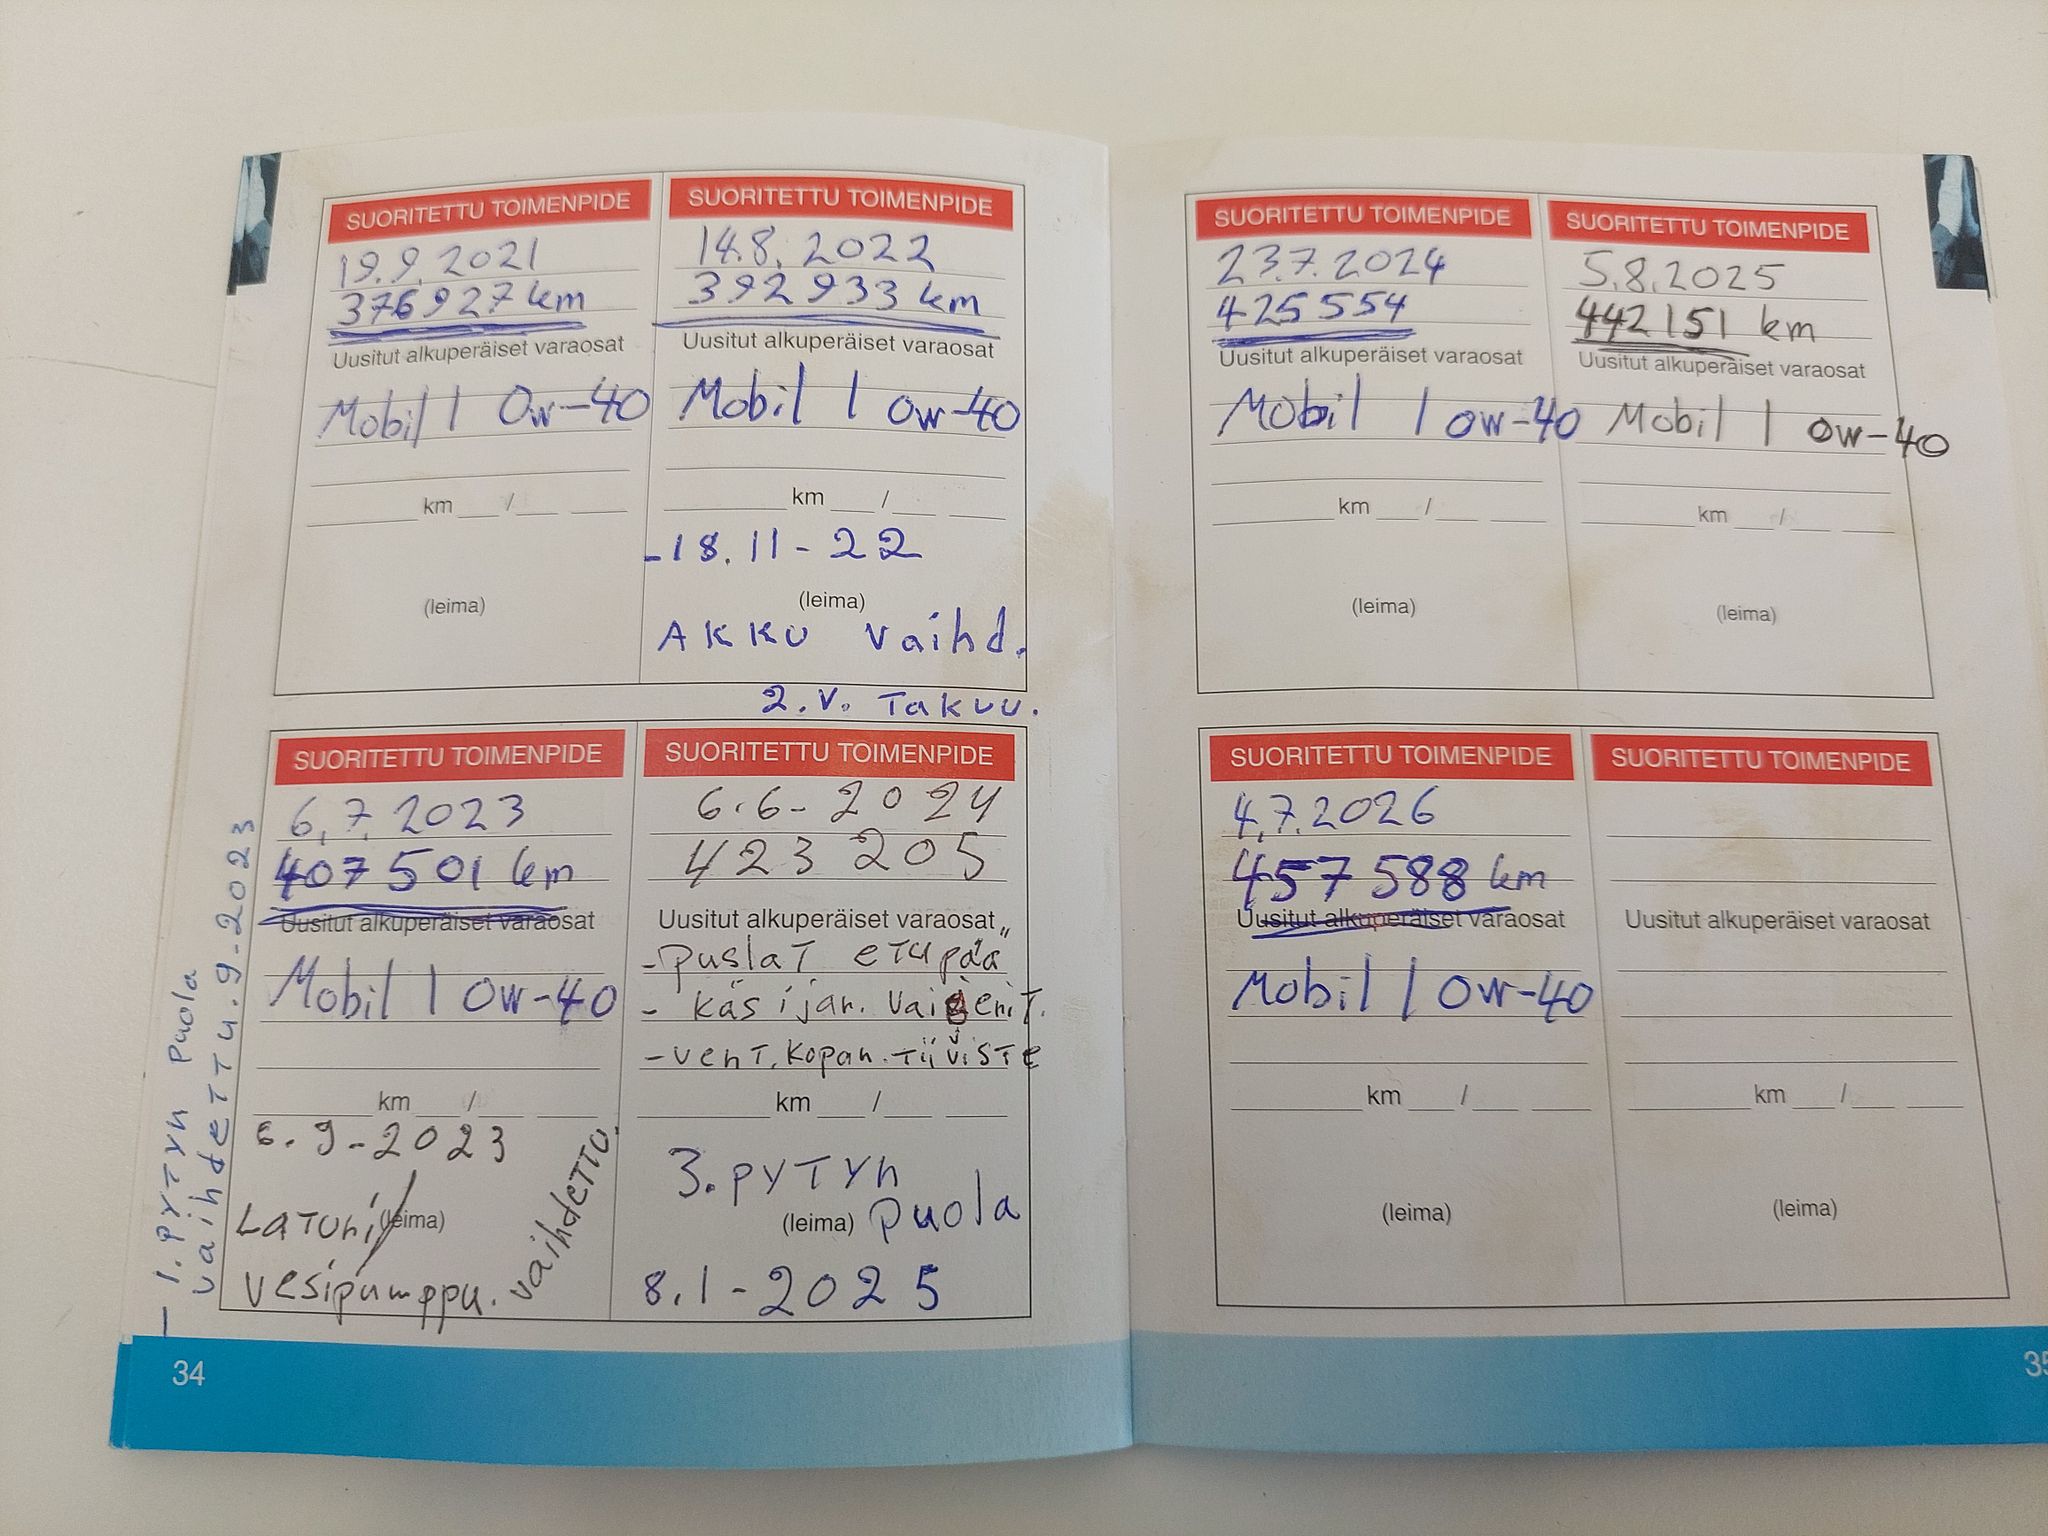 SUORITETTU TOIMENPIDE
19.9.2021
376927 km
Uusitut alkuperäiset varaosat
Mobil 1 0w-40
km / 
(leima)
SUORITETTU TOIMENPIDE
14.8.2022
392933 km
Uusitut alkuperäiset varaosat
Mobil 1 0w-40
km / 
-18.11-22
(leima)
AKKU vaihd.
2.V. TAKUU.
SUORITETTU TOIMENPIDE
6.7.2023
407501 km
Uusitut alkuperäiset varaosat
Mobil 1 0w-40
km / 
6.9-2023
LATURI/
(leima)
vesipumppu. vaihdettu.
- 1. PYTYN Puola
vaihdettu. 9-2023
SUORITETTU TOIMENPIDE
6.6-2024
423 205
Uusitut alkuperäiset varaosat
- puslat etupää
- käsijar. vaijerit.
- vent. kopan. tiiviste
km / 
3. PYTYN
(leima) puola
8.1-2025
34
SUORITETTU TOIMENPIDE
23.7.2024
425554
Uusitut alkuperäiset varaosat
Mobil 1 0w-40
km / 
(leima)
SUORITETTU TOIMENPIDE
5.8.2025
442151 km
Uusitut alkuperäiset varaosat
Mobil 1 0w-40
km / 
(leima)
SUORITETTU TOIMENPIDE
4.7.2026
457588 km
Uusitut alkuperäiset varaosat
Mobil 1 0w-40
km / 
(leima)
SUORITETTU TOIMENPIDE
Uusitut alkuperäiset varaosat
km / 
(leima)
35